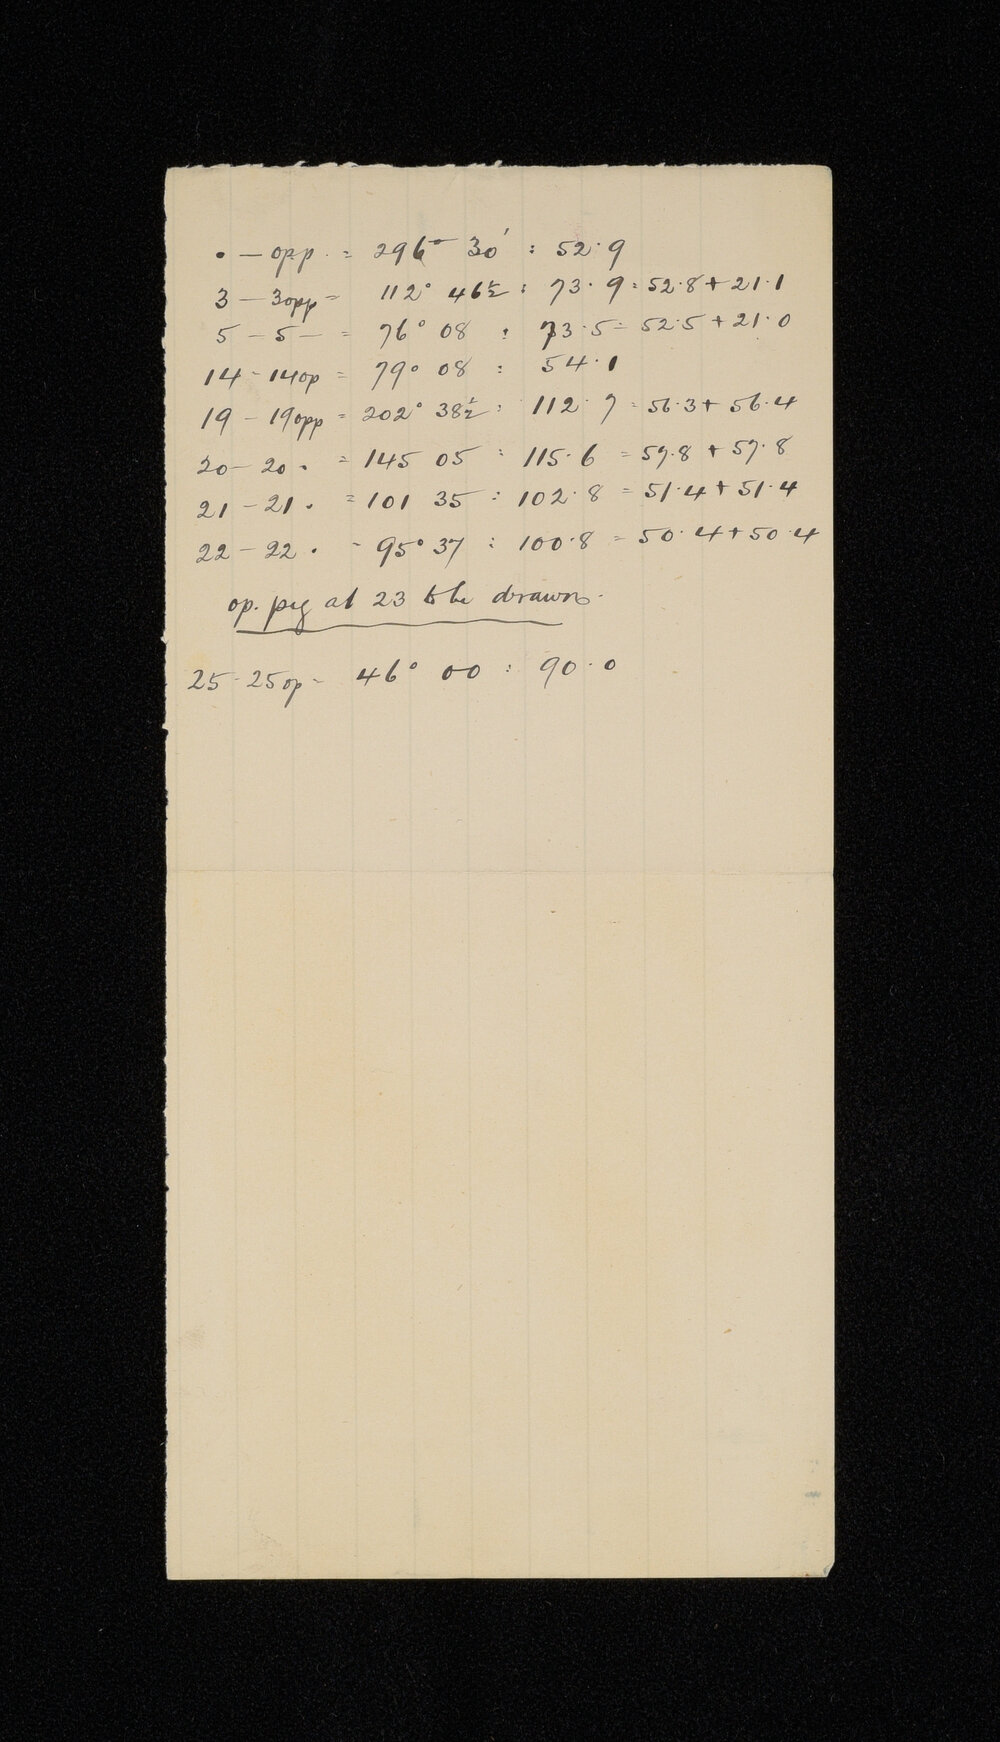 • — opp. = 296° 30' : 52·9
3 — 3opp = 112° 46½ : 73·9 = 52·8 + 21·1
5 — 5 — = 76° 08 : 73·5 = 52·5 + 21·0
14 - 14op = 79° 08 : 54·1
19 - 19opp = 202° 38½ : 112·7 = 56·3 + 56·4
20 - 20 . = 145 05 : 115·6 = 57·8 + 57·8
21 - 21 . = 101 35 : 102·8 = 51·4 + 51·4
22 - 22 . - 95° 37 : 100·8 = 50·4 + 50·4
op. peg at 23 to be drawn.
25 - 25op - 46° 00 : 90·0